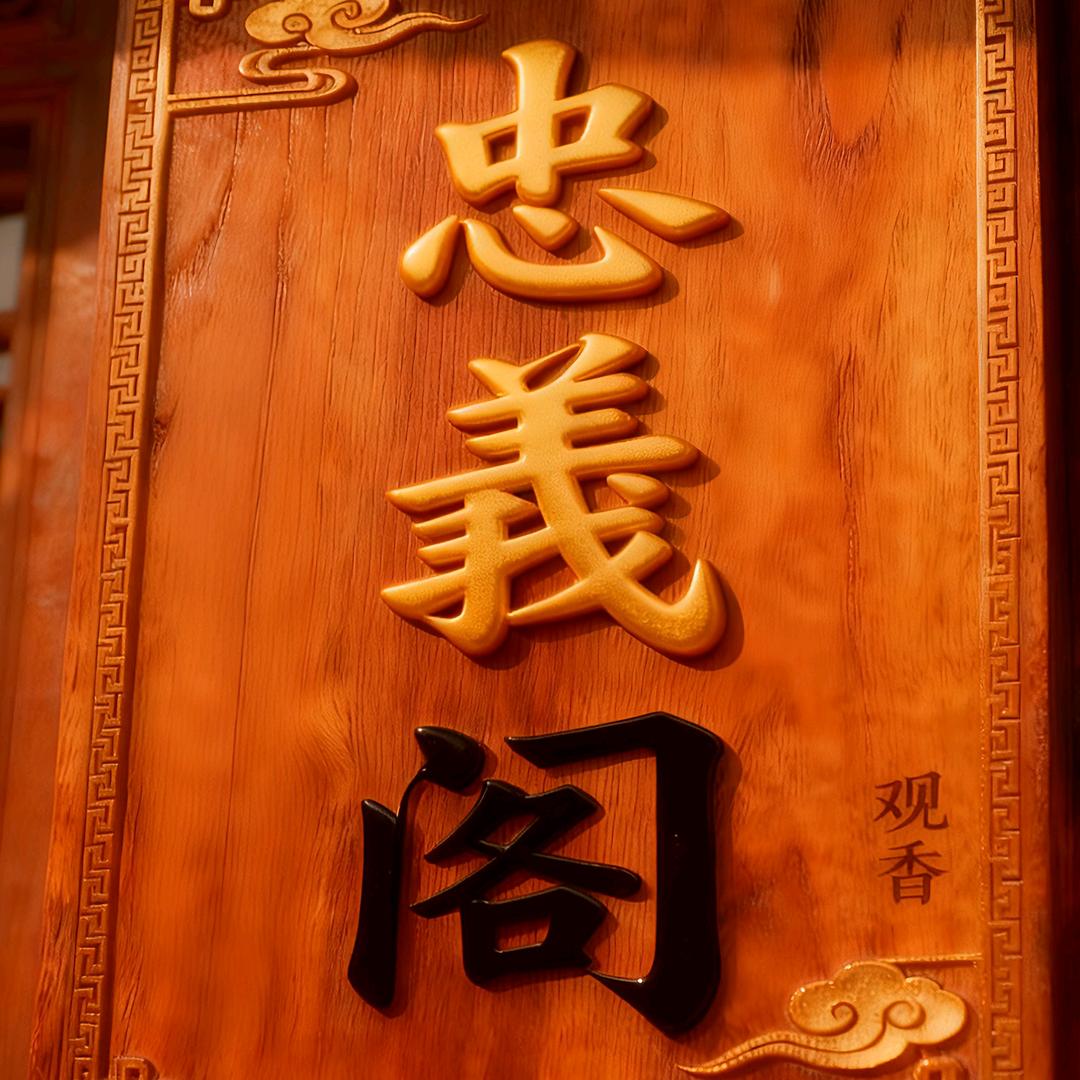 忠義阁
观香